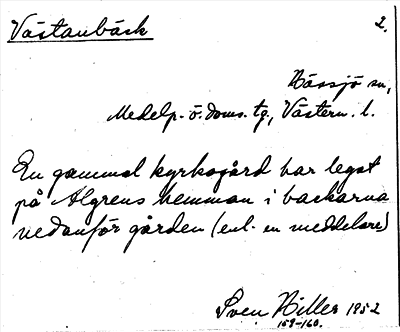 Västanbäck 2.
Hässjö sn,
Medelp. ö. doms. tg., Västern. l.
En gammal kyrkogård har legat
på Algrens hemman i backarna
nedanför gården (enl. en meddelare)
Sven Hiller 1952
159-160.